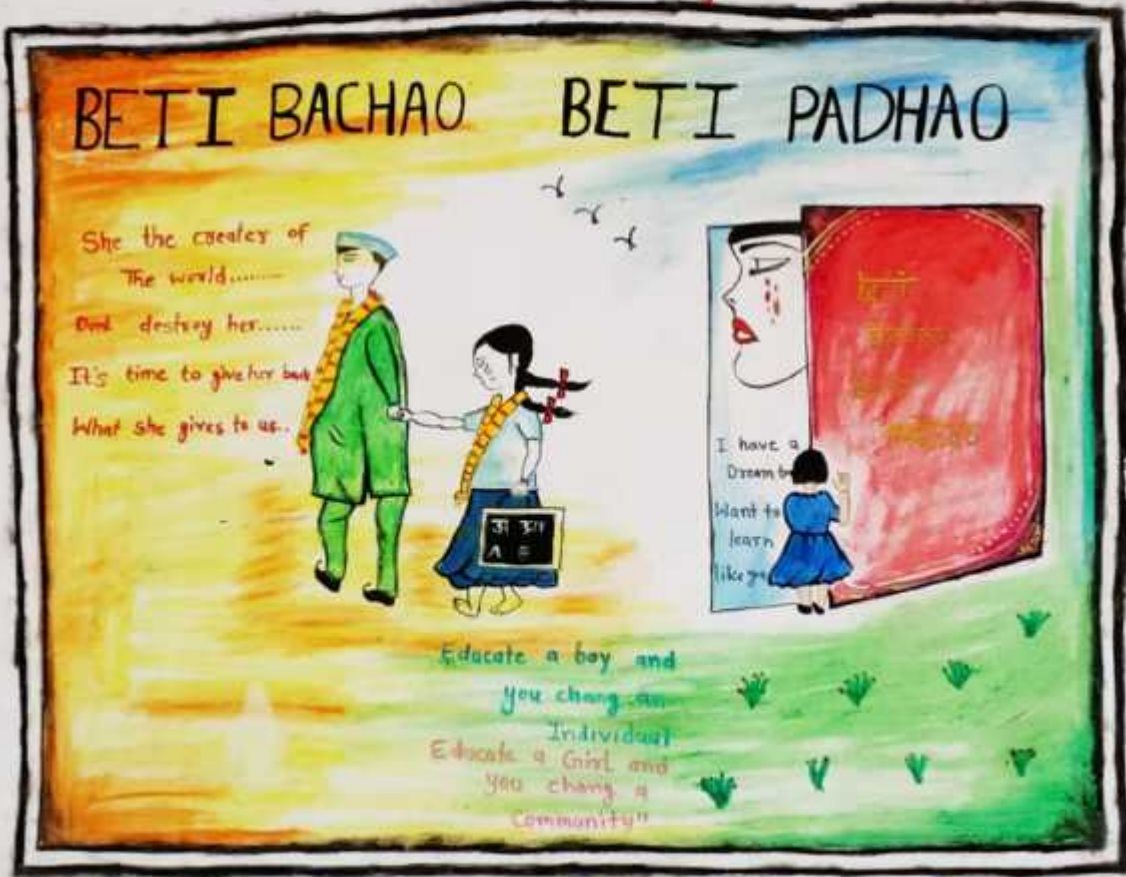 BETI BACHAO BETI PADHAO
She the creater of
The world.........
Dont destroy her......
It's time to give her back
What she gives to us..
अ आ
A B
I have a
Dream
Want to
learn
like
Educate a boy and
you chang an
Individual
Educate a Girl and
you chang a
Community"